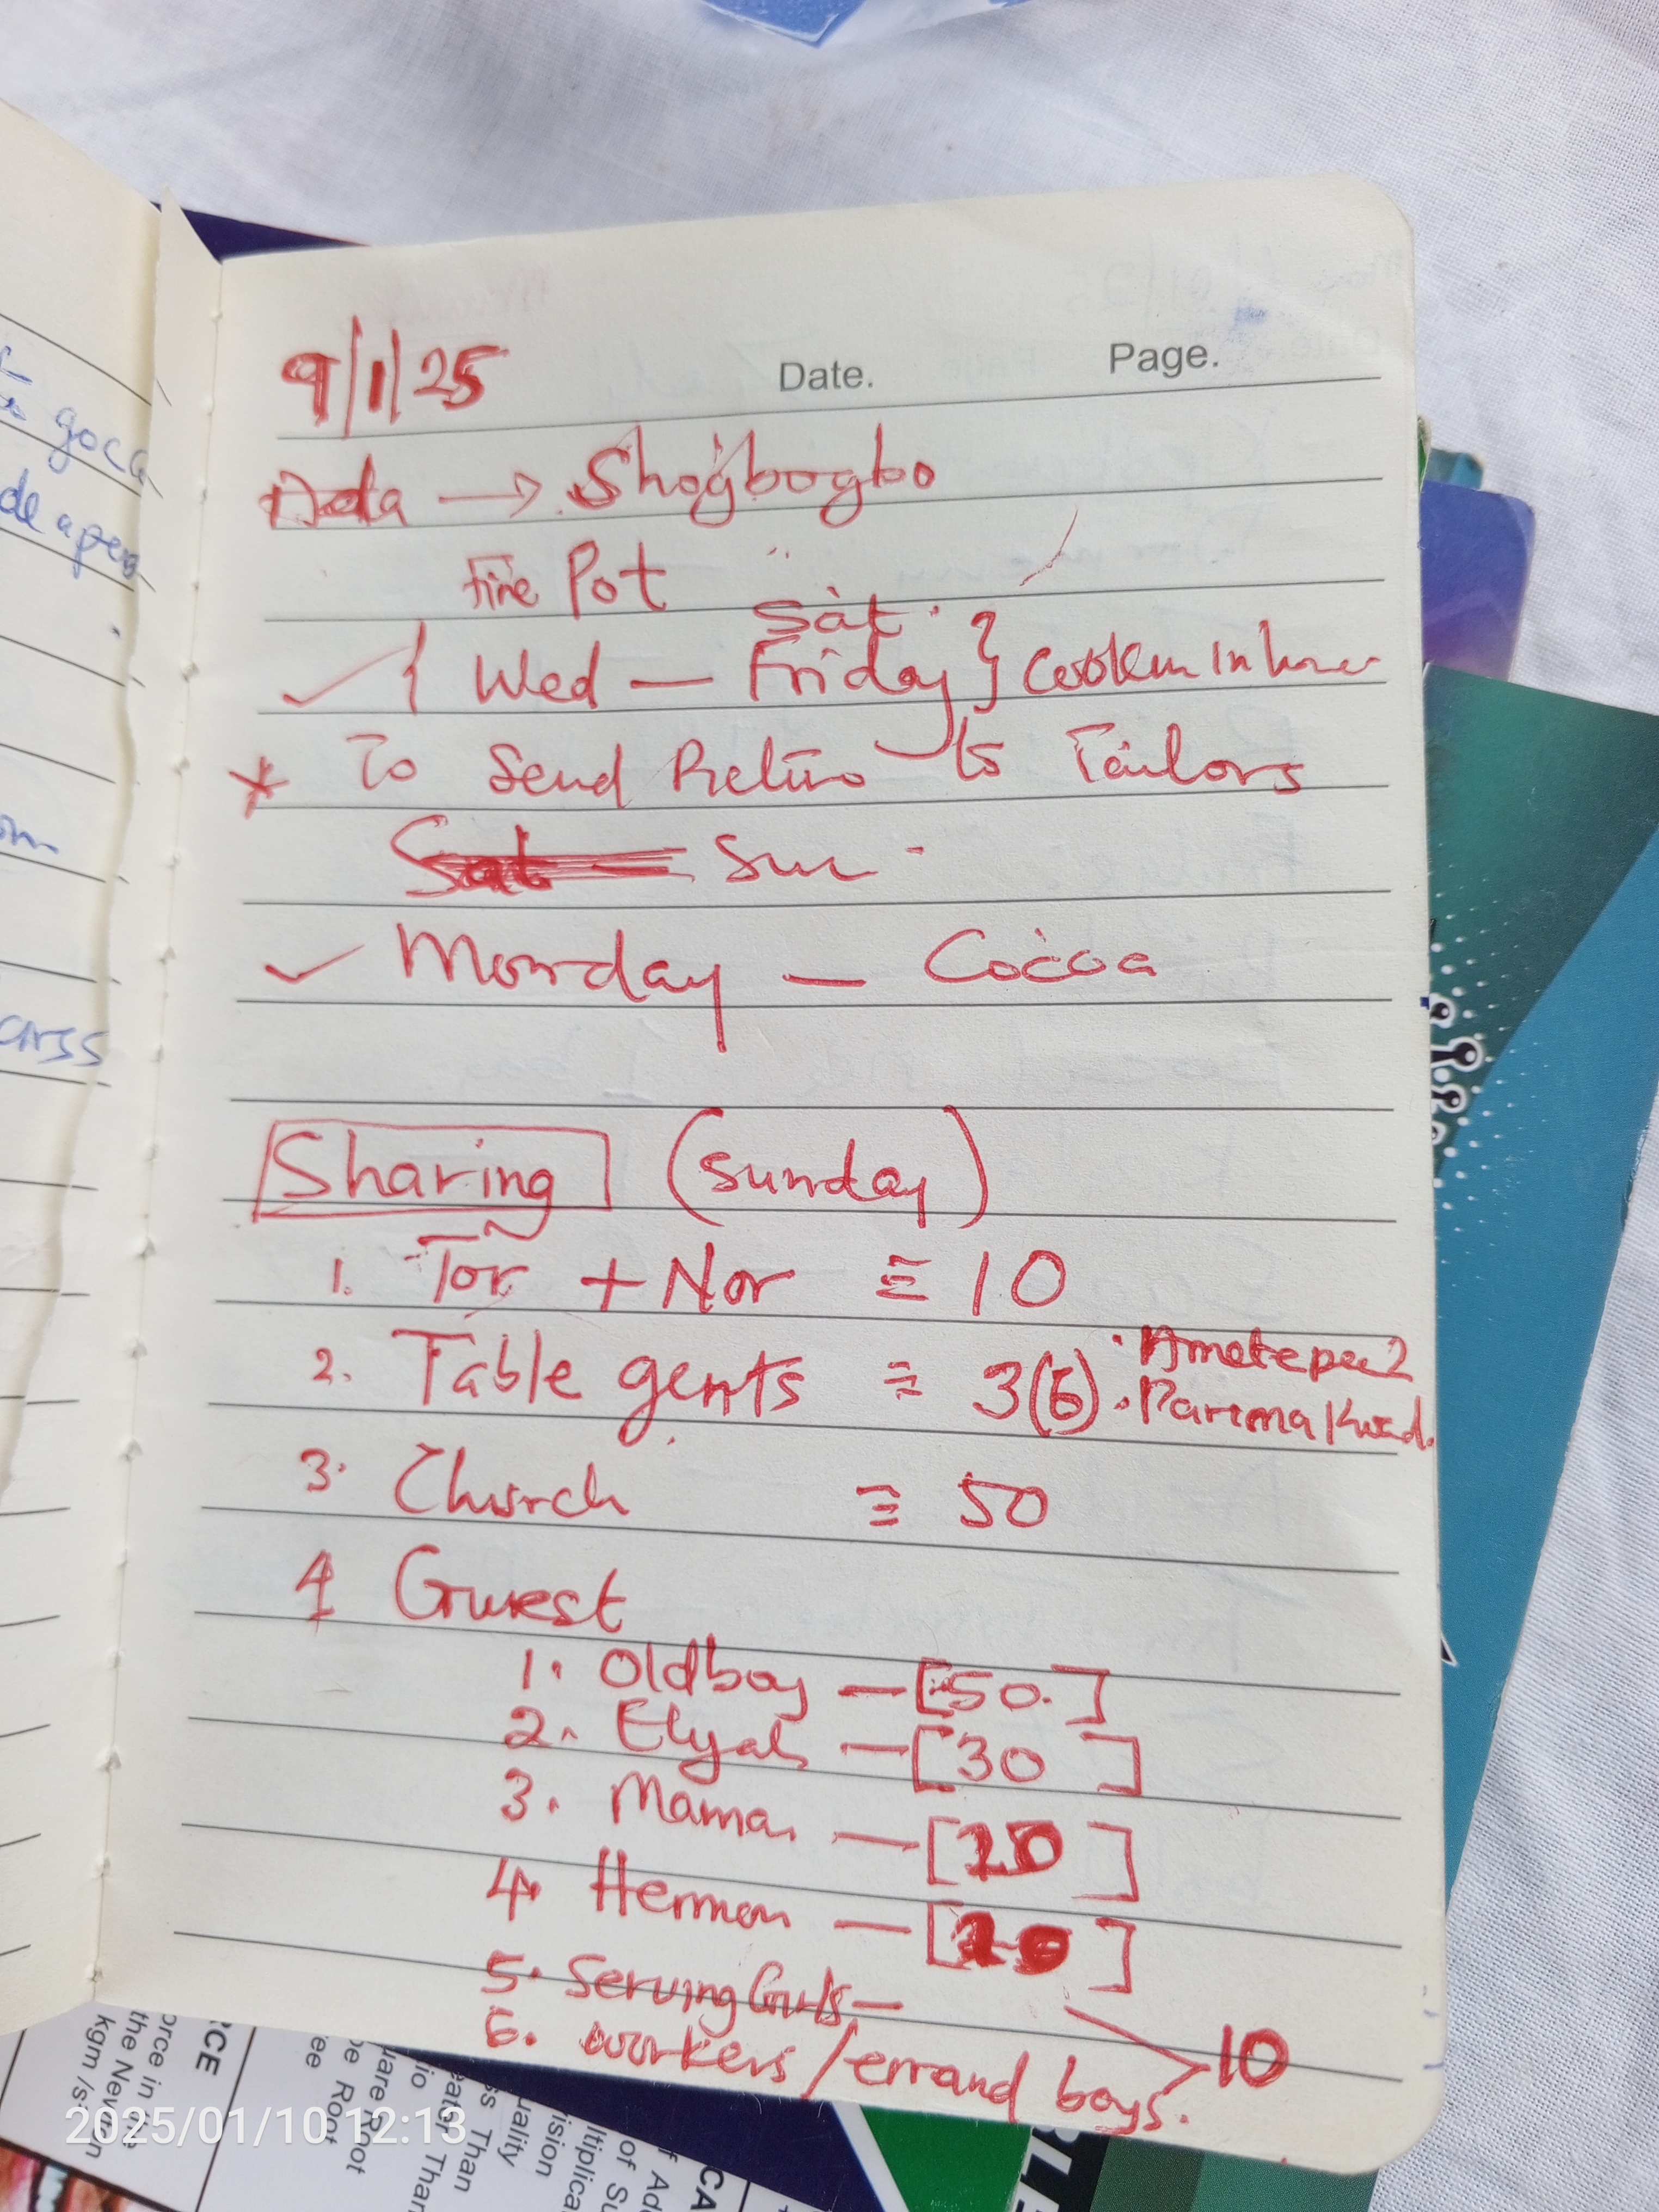 9/1/25
Date. Page.
→ Shogbogbo
Fire Pot
Sat.
✓ { Wed — Friday }
* To Send to Tailors
Sat Sun -
✓ Monday — Cocoa
Sharing (sunday)
1. Tor + Nor ≡ 10
2. Table gents ≡ 3(6) • Ametepee2
• Parima Kwad.
3. Church ≡ 50
4 Guest
1. Oldboy — [50.]
2. Elyah — [30]
3. Mama — [20]
4. Hermon — [20]
5. Serving Girls —
6. workers / errand boys. 10
goca
de apea
RCE
orce in
the Newton
kgm/s
uare Root
ee
Root
eater Than
ss Than
uality
ision
ltiplica
of Su
f Ad
CA
2025/01/10 12:13